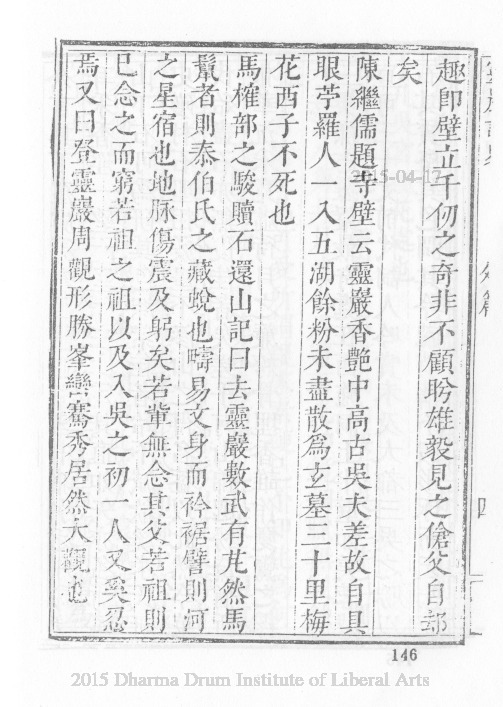 趣卽壁立千仞之奇非不顧盻雄毅見之傖父自郐
矣
陳繼儒題寺壁云靈巖香艷中高古吳夫差故自具
眼苧羅人一入五湖餘粉未盡散爲玄墓三十里梅
花西子不死也
馬榷部之駿贖石還山記曰去靈巖數武有芃然馬
鬣者則泰伯氏之藏蛻也疇易文身而衿裾譬則河
之星宿也地脉傷震及躬矣若輩無念其父若祖則
已念之而窮若祖之祖以及入吳之初一人又奚忍
焉又曰登靈巖周觀形勝峯巒騫秀居然大觀也
四
2015-04-17
146
2015 Dharma Drum Institute of Liberal Arts